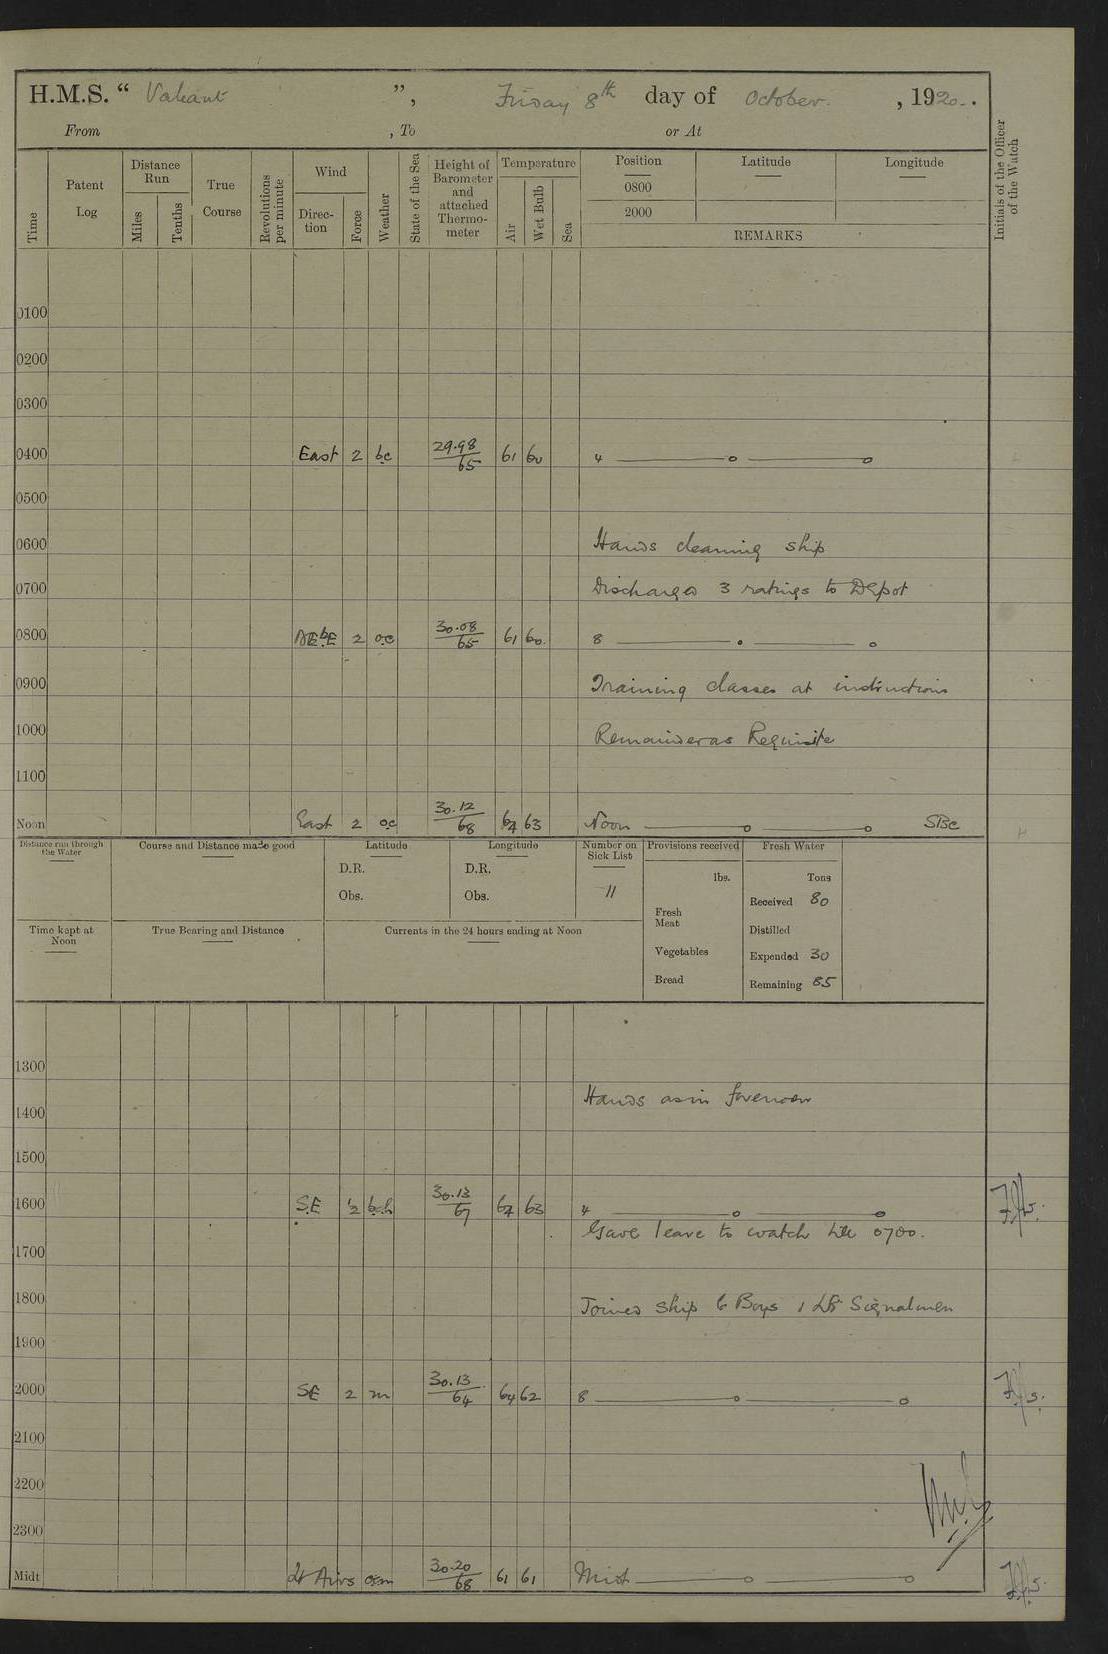 H.M.S. “ Valiant ”, Friday 8th day of October. , 1920.
From , To or At
Time
Patent Log
Distance Run
Miles
Tenths
True Course
Revolutions per minute
Wind
Direc-tion
Force
Weather
State of the Sea
Height of Barometer and attached Thermo-meter
Temperature
Air
Wet Bulb
Sea
Position Latitude Longitude
0800
2000
REMARKS
Initials of the Officer of the Watch
0100
0200
0300
0400 East 2 bc 29.98/65 61 60 4
0500
0600 Hands cleaning ship
0700 Discharged 3 ratings to Depot
0800 NEbE 2 oc 30.08/65 61 60 8
0900 Training classes at instructions
1000 Remainder as Requisite
1100
Noon East 2 oc 30.12/68 64 63 Noon SBC
Distance run through the Water
Course and Distance made good
Latitude
D.R.
Obs.
Longitude
D.R.
Obs.
Number on Sick List
11
Provisions received
lbs.
Fresh Meat
Vegetables
Bread
Fresh Water
Tons
Received 80
Distilled
Expended 30
Remaining 85
Time kept at Noon
True Bearing and Distance
Currents in the 24 hours ending at Noon
1300
Hands as in forenoon
1400
1500
1600 S.E ½ bch 30.13/67 67 63 4
Gave leave to watch till 0700.
1700
1800 Joined ship 6 Boys 1 Ldg Signalmen
1900
2000 SE 2 m 30.13/64 64 62 8
2100
2200
2300
Midt Lt Airs om 30.20/68 61 61 Midt